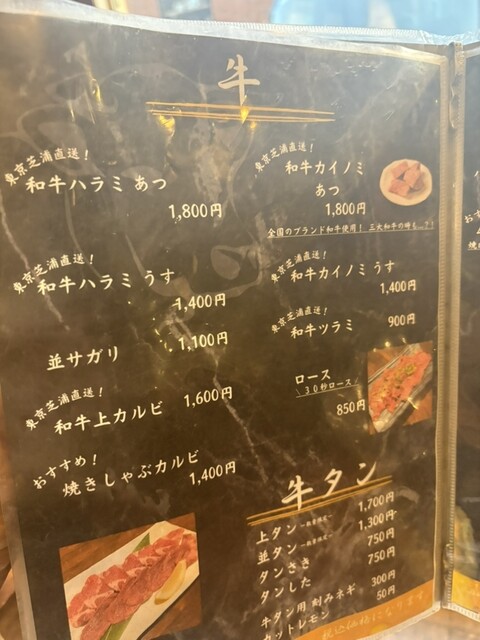 牛
東京芝浦直送！
和牛ハラミ あつ
1,800円
東京芝浦直送！
和牛ハラミ うす
1,400円
並サガリ
1,100円
東京芝浦直送！
和牛上カルビ
1,600円
おすすめ！
焼きしゃぶカルビ
1,400円
東京芝浦直送！
和牛カイノミ
あつ
1,800円
全国のブランド和牛使用！ 三大和牛の時も…？！
東京芝浦直送！
和牛カイノミ うす
1,400円
東京芝浦直送！
和牛ツラミ
900円
ロース
\ 30秒ロース /
850円
牛タン
上タン ～数量限定～ 1,700円
並タン ～数量限定～ 1,300円
タンさき 750円
タンした 750円
牛タン用 刻みネギ 300円
カットレモン 50円